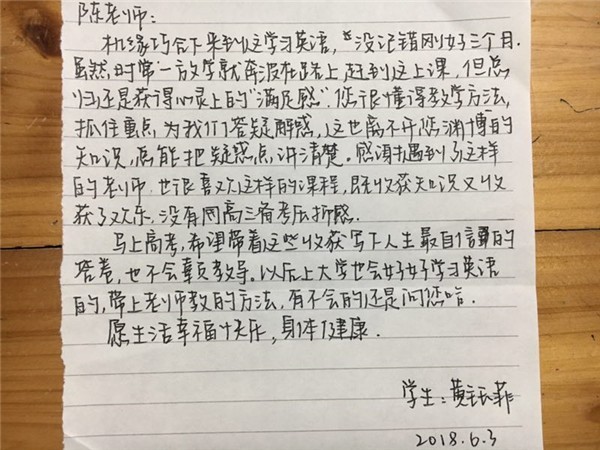 陈老师：
机缘巧合下来到这学习英语，没记错刚好三个月.
虽然时常一放学就奔波在路上赶到这上课，但总
归还是获得心灵上的“满足感”。您很懂得教学方法，
抓住重点为我们答疑解惑，这也离不开您渊博的
知识，总能把疑惑点讲清楚。感谢遇到了这样
的老师也很喜欢这样的课程，既收获知识又收
获了欢乐.没有因高三备考压抑感.
马上高考，希望带着这些收获写下人生最自信的
答卷，也不会辜负教导。以后上大学也会好好学习英语
的，带上老师教的方法，有不会的还是问您哈.
愿生活幸福快乐，身体健康.
学生：黄菲
2018.6.3